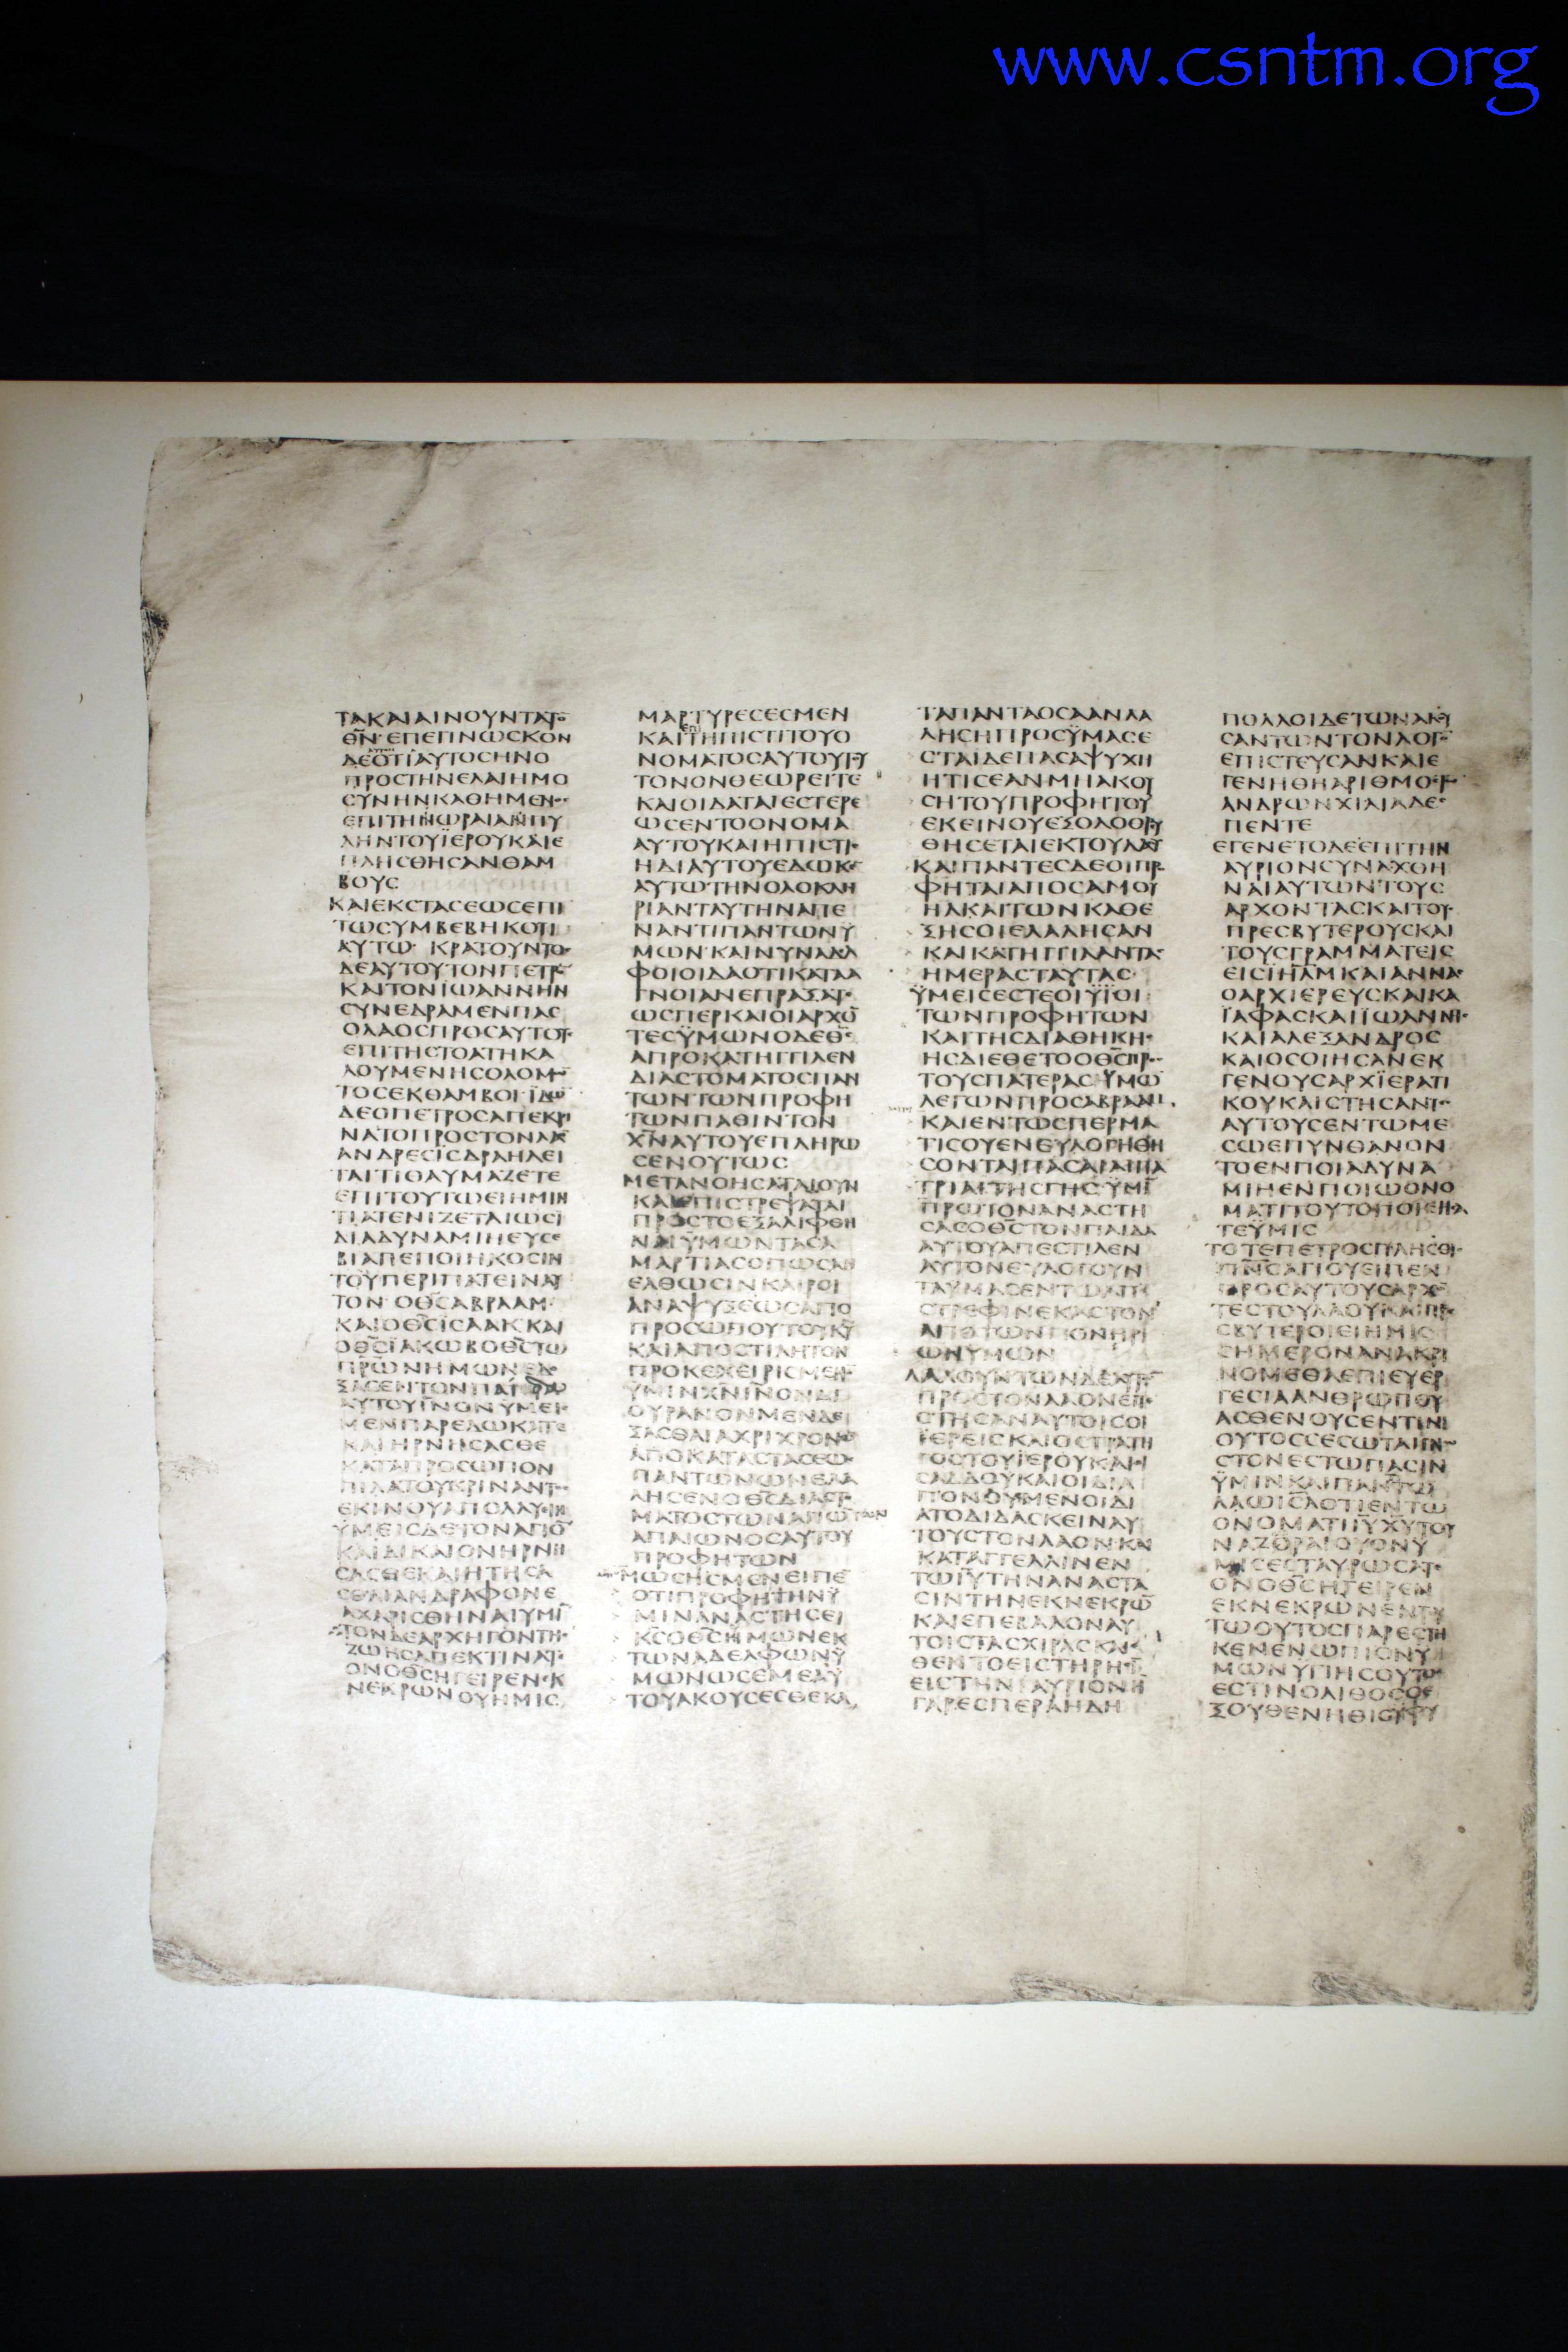 www.csntm.org
ΤΑΚΑΙΑΙΝΟΥΝΤΑΤΟ̅
ΘΝ̅·ΕΠΕΓΙΝΩCΚΟΝ
ΔΕΟΤΙΑΥΤΟCΗΝΟ
ΠΡΟCΤΗΝΕΛΑΙΗΜΟ
CΥΝΗΝΚΑΘΗΜΕΝ
ΕΠΙΤΗΩΡΑΙΑΠΥ
ΛΗΝΤΟΥΪΕΡΟΥΚΑΙΕ
ΠΛΗCΘΗCΑΝΘΑΜ
ΒΟΥC
ΚΑΙΕΚCΤΑCΕΩCΕΠΙ
ΤΩCΥΜΒΕΒΗΚΟΤΙ
ΑΥΤΩ· ΚΡΑΤΟΥΝΤΟ
ΔΕΑΥΤΟΥΤΟΝΠΕΤΡ
ΚΑΙΤΟΝΪΩΑΝΝΗΝ
CΥΝΕΔΡΑΜΕΝΠΑC
ΟΛΑΟCΠΡΟCΑΥΤΟΥ
ΕΠΙΤΗCΤΟΑΤΗΚΑ
ΛΟΥΜΕΝΗCΟΛΟΜ
ΤΟCΕΚΘΑΜΒΟΙ·ΪΔΩ
ΔΕΟΠΕΤΡΟCΑΠΕΚΡΙ
ΝΑΤΟΠΡΟCΤΟΝΛΑΟ
ΑΝΔΡΕCΙCΔΡΑΗΛΕΙ
ΤΑΙΤΙΘΑΥΜΑΖΕΤΕ
ΕΠΙΤΟΥΤΩΕΙΗΜΙΝ
ΤΙΑΤΕΝΙΖΕΤΑΙΩCΙ
ΔΙΑΔΥΝΑΜΙΗΕΥCΕ
ΒΙΑΠΕΠΟΙΗΚΟCΙΝ
ΤΟΥΠΕΡΙΠΑΤΕΙΝΑΥ
ΤΟΝ·ΟΘ̅C̅ΑΒΡΑΑΜ·
ΚΑΙΟΘ̅C̅ΙCΑΑΚΚΑΙ
ΟΘ̅C̅ΪΑΚΩΒΟΘ̅C̅ΤΩ
ΠΡ̅Ω̅ΝΗΜΩΝΕΔΟ
ΞΑCΕΝΤΟΝΠΑΙΔΑ
ΑΥΤΟΥΙ̅Ν̅ΟΝΥΜΕΙ
ΜΕΝΠΑΡΕΔΩΚΑΤΕ
ΚΑΙΗΡΝΗCΑCΘΕ
ΚΑΤΑΠΡΟCΩΠΟΝ
ΠΙΛΑΤΟΥΚΡΙΝΑΝΤ
ΕΚΙΝΟΥΑΠΟΛΥΙΝ
ΥΜΕΙCΔΕΤΟΝΑΓΙΟ̅
ΚΑΙΔΙΚΑΙΟΝΗΡΝΗ
CΑCΘΕΚΑΙΗΤΗCΑ
CΘΑΙΑΝΔΡΑΦΟΝΕ
ΑΧΑΡΙCΘΗΝΑΙΥΜΙ̅
ΤΟΝΔΕΑΡΧΗΓΟΝΤΗ
ΖΩΗCΑΠΕΚΤΙΝΑΤ
ΟΝΟΘ̅C̅ΗΓΕΙΡΕΝΕΚ
ΝΕΚΡΩΝΟΥΗΜΙC
ΜΑΡΤΥΡΕCΕCΜΕΝ
ΚΑΙΤΗΠΙCΤΙΤΟΥΟ
ΝΟΜΑΤΟCΑΥΤΟΥΤΟΥ
ΤΟΝΟΝΘΕΩΡΕΙΤΕ
ΚΑΙΟΙΔΑΤΑΙΕCΤΕΡΕ
ΩCΕΝΤΟΟΝΟΜΑ
ΑΥΤΟΥΚΑΙΗΠΙCΤΙ
ΗΔΙΑΥΤΟΥΕΔΩΚΕ
ΑΥΤΩΤΗΝΟΛΟΚΛΗ
ΡΙΑΝΤΑΥΤΗΝΑΠΕ
ΝΑΝΤΙΠΑΝΤΩΝΫ
ΜΩΝ·ΚΑΙΝΥΝΑΔΛ
ΦΟΙΟΙΔΑΟΤΙΚΑΤΑΑ
ΓΝΟΙΑΝΕΠΡΑΞΑΤ
ΩCΠΕΡΚΑΙΟΙΑΡΧΟ̅
ΤΕCΫΜΩΝΟΔΕΘ̅C̅
ΑΠΡΟΚΑΤΗΓΓΙΛΕΝ
ΔΙΑCΤΟΜΑΤΟCΠΑΝ
ΤΩΝΤΩΝΠΡΟΦΗ
ΤΩΝΠΑΘΙΝΤΟΝ
Χ̅Ν̅ΑΥΤΟΥΕΠΛΗΡΩ
CΕΝΟΥΤΩC
ΜΕΤΑΝΟΗCΑΤΑΙΟΥΝ
ΚΑΙΕΠΙCΤΡΕΨΑΤΑΙ
ΠΡΟCΤΟΕΞΑΛΙΦΘΗ
ΝΑΙΥΜΩΝΤΑCΑ
ΜΑΡΤΙΑCΟΠΩCΑΝ
ΕΛΘΩCΙΝΚΑΙΡΟΙ
ΑΝΑΨΥΞΕΩCΑΠΟ
ΠΡΟCΩΠΟΥΤΟΥΚ̅Υ̅
ΚΑΙΑΠΟCΤΙΛΗΤΟΝ
ΠΡΟΚΕΧΕΙΡΙCΜΕΝ
ΥΜΙΝΧ̅Ν̅Ι̅Ν̅ΟΝΔΙ
ΟΥΡΑΝΟΝΜΕΝΔΕΙ
ΞΑCΘΑΙΑΧΡΙΧΡΟΝΩ
ΑΠΟΚΑΤΑCΤΑCΕΩ
ΠΑΝΤΩΝΩΝΕΛΑ
ΛΗCΕΝΟΘ̅C̅ΔΙΑCΤ
ΜΑΤΟCΤΩΝΑΓΙΩ̅
ΑΠΑΙΩΝΟCΑΥΤΟΥ
ΠΡΟΦΗΤΩΝ
ΜΩCΗCΜΕΝΕΙΠΕ
ΟΤΙΠΡΟΦΗΤΗΝΫ
ΜΙΝΑΝΑCΤΗCΕΙ
Κ̅C̅ΟΘ̅C̅ΗΜΩΝΕΚ
ΤΩΝΑΔΕΛΦΩΝΫ
ΜΩΝΩCΕΜΕΑΥ
ΤΟΥΑΚΟΥCΕCΘΕΚΑ
ΤΑΠΑΝΤΑΟCΑΑΝΛΑ
ΛΗCΗΠΡΟCΫΜΑCΕ
CΤΑΙΔΕΠΑCΑΨΥΧΗ
ΗΤΙCΕΑΝΜΗΑΚΟΥ
CΗΤΟΥΠΡΟΦΗΤΟΥ
ΕΚΕΙΝΟΥΕΞΟΛΟΘΡΥ
ΘΗCΕΤΑΙΕΚΤΟΥΛΑΟΥ
ΚΑΙΠΑΝΤΕCΔΕΟΙΠΡ
ΦΗΤΑΙΑΠΟCΑΜΟΥ
ΗΛΚΑΙΤΩΝΚΑΘΕ
ΞΗCΟCΟΙΕΛΑΛΗCΑΝ
ΚΑΙΚΑΤΗΓΓΙΛΑΝΤΑ
ΗΜΕΡΑCΤΑΥΤΑC
ΫΜΕΙCΕCΤΕΟΙΫΪΟΙ
ΤΩΝΠΡΟΦΗΤΩΝ
ΚΑΙΤΗCΔΙΑΘΗΚΗ
ΗCΔΙΕΘΕΤΟΟΘ̅C̅ΠΡ
ΤΟΥCΠΑΤΕΡΑCΫΜΩ̅
ΛΕΓΩΝΠΡΟCΑΒΡΑΑΜ
ΚΑΙΕΝΤΩCΠΕΡΜΑ
ΤΙCΟΥΕΝΕΥΛΟΓΗΘΗ
CΟΝΤΑΙΠΑCΑΙΑΙΠΑ
ΤΡΙΑΙΤΗCΓΗCΥΜΙ̅
ΠΡΩΤΟΝΑΝΑCΤΗ
CΑCΟΘ̅C̅ΤΟΝΠΑΙΔΑ
ΑΥΤΟΥΑΠΕCΤΙΛΕΝ
ΑΥΤΟΝΕΥΛΟΓΟΥΝ
ΤΑΥΜΑCΕΝΤΩΑΠΟ
CΤΡΕΦΙΝΕΚΑCΤΟΝ
ΑΠΟΤΩΝΠΟΝΗΡΙ
ΩΝΥΜΩΝ
ΛΑΛΟΥΝΤΩΝΔΕΑΥΤ
ΠΡΟCΤΟΝΛΑΟΝΕΠΕ
CΤΗCΑΝΑΥΤΟΙCΟΙ
ΪΕΡΕΙCΚΑΙΟCΤΡΑΤΗ
ΓΟCΤΟΥΪΕΡΟΥΚΑΙΟΙ
CΑΔΔΟΥΚΑΙΟΙΔΙΑ
ΠΟΝΟΥΜΕΝΟΙΔΙ
ΑΤΟΔΙΔΑCΚΕΙΝΑΥ
ΤΟΥCΤΟΝΛΑΟΝΚΑΙ
ΚΑΤΑΓΓΕΛΛΙΝΕΝ
ΤΩΙ̅Υ̅ΤΗΝΑΝΑCΤΑ
CΙΝΤΗΝΕΚΝΕΚΡΩ̅
ΚΑΙΕΠΕΒΑΛΟΝΑΥ
ΤΟΙCΤΑCΧΙΡΑCΚΑΙ
ΘΕΝΤΟΕΙCΤΗΡΗCΙ
ΕΙCΤΗΝΑΥΡΙΟΝΗ
ΓΑΡΕCΠΕΡΑΗΔΗ
ΠΟΛΛΟΙΔΕΤΩΝΑΚΟΥ
CΑΝΤΩΝΤΟΝΛΟΓΟ̅
ΕΠΙCΤΕΥCΑΝΚΑΙΕ
ΓΕΝΗΘΗΑΡΙΘΜΟC
ΑΝΔΡΩΝΧΙΛΙΑΔΕ
ΠΕΝΤΕ
ΕΓΕΝΕΤΟΔΕΕΠΙΤΗΝ
ΑΥΡΙΟΝCΥΝΑΧΘΗ
ΝΑΙΑΥΤΩΝΤΟΥC
ΑΡΧΟΝΤΑCΚΑΙΤΟΥ
ΠΡΕCΒΥΤΕΡΟΥCΚΑΙ
ΤΟΥCΓΡΑΜΜΑΤΕΙC
ΕΙCΪΗ̅Λ̅Μ̅ΚΑΙΑΝΝΑ
ΟΑΡΧΙΕΡΕΥCΚΑΙΚΑ
ΪΑΦΑCΚΑΙΪΩΑΝΝΗ
ΚΑΙΑΛΕΞΑΝΔΡΟC
ΚΑΙΟCΟΙΗCΑΝΕΚ
ΓΕΝΟΥCΑΡΧΪΕΡΑΤΙ
ΚΟΥΚΑΙCΤΗCΑΝΤ
ΑΥΤΟΥCΕΝΤΩΜΕ
CΩΕΠΥΝΘΑΝΟΝ
ΤΟΕΝΠΟΙΑΔΥΝΑ
ΜΙΗΕΝΠΟΙΩΟΝΟ
ΜΑΤΙΤΟΥΤΟΠΟΙΗCΑ
ΤΕΫΜΙC
ΤΟΤΕΠΕΤΡΟCΠΛΗCΘΙ
Π̅Ν̅C̅ΑΓΙΟΥΕΙΠΕΝ
ΠΡΟCΑΥΤΟΥCΑΡΧΟ̅
ΤΕCΤΟΥΛΑΟΥΚΑΙΠΡ
CΒΥΤΕΡΟΙΕΙΗΜΙC
CΗΜΕΡΟΝΑΝΑΚΡΙ
ΝΟΜΕΘΑΕΠΙΕΥΕΡ
ΓΕCΙΑΑΝΘΡΩΠΟΥ
ΑCΘΕΝΟΥCΕΝΤΙΝΙ
ΟΥΤΟCCΕCΩΤΑΙΓΝ
CΤΟΝΕCΤΩΠΑCΙΝ
ΫΜΙΝΚΑΙΠΑΝΤΙΤΩ
ΛΑΩΙC̅Λ̅ΟΤΙΕΝΤΩ
ΟΝΟΜΑΤΙΙ̅Υ̅Χ̅Υ̅ΤΟΥ
ΝΑΖΩΡΑΙΟΥΟΝΥ
ΜΙCΕCΤΑΥΡΩCΑΤ
ΟΝΟΘ̅C̅ΗΓΕΙΡΕΝ
ΕΚΝΕΚΡΩΝΕΝΤΥ
ΤΩΟΥΤΟCΠΑΡΕCΤΗ
ΚΕΝΕΝΩΠΙΟΝΥ
ΜΩΝΥΓΙΗCΟΥΤΟ
ΕCΤΙΝΟΛΙΘΟCΟΕ
ΞΟΥΘΕΝΗΘΙCΥΦΥ